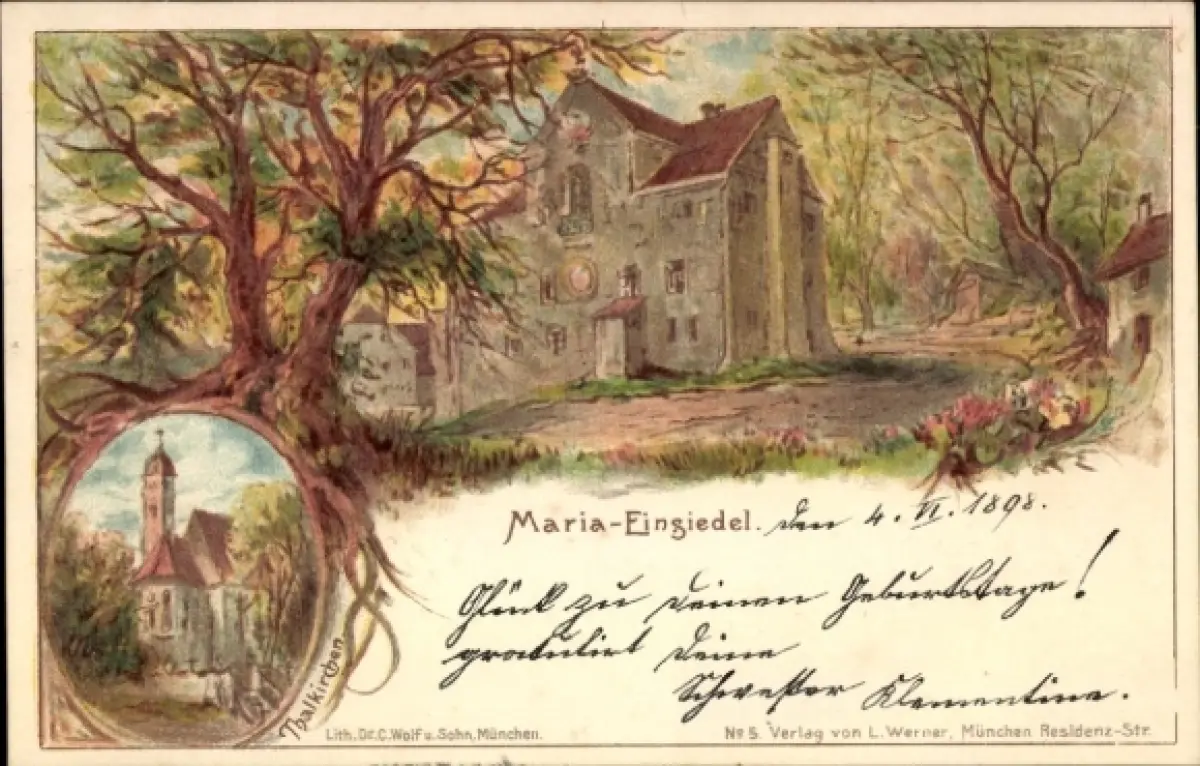 Maria-Einsiedel. den 4. VI. 1898.
Glück zu deinen Geburtstage!
gratulirt deine
Schwester Klementine.
Thalkirchen
Lith. Dr. C. Wolf u. Sohn, München.
No 5. Verlag von L. Werner, München Residenz-Str.